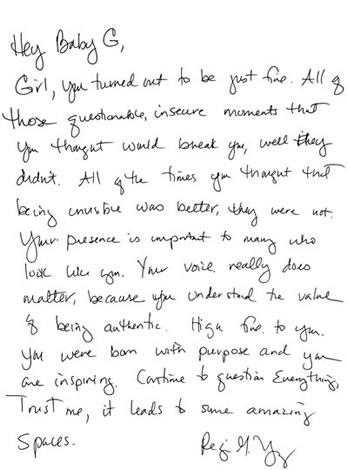 Hey Baby G,
Girl, you turned out to be just fine. All of
those questionable, insecure moments that
you thought would break you, well they
didn't. All of the times you thought that
being invisible was better, they were not.
Your presence is important to many who
look like you. Your voice really does
matter, because you understand the value
of being authentic. High five to you.
You were born with purpose and you
are inspiring. Continue to question everything,
Trust me, it leads to some amazing
Spaces.